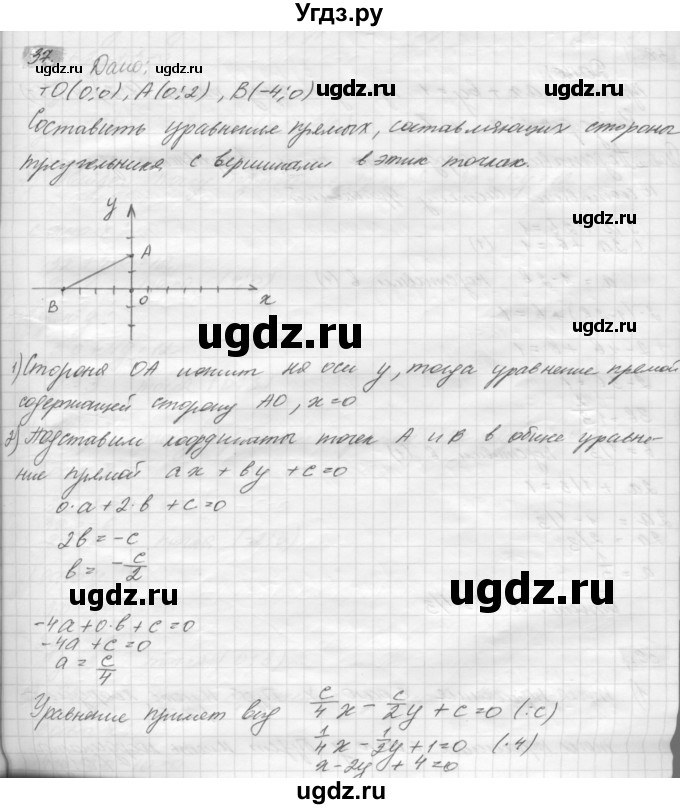 Угдз.ру
37
Дано:
ugdz.ru
ugdz.ru
тO(0;0), A(0;2), B(-4;0)
ugdz.ru
ugdz.ru
Составить уравнение прямых, составляющих стороны
треугольника с вершинами в этих точках.
y
ugdz.ru
A
B
O
x
ugdz.ru
1) Сторона OA лежит на оси y, тогда уравнение прямой
содержащей сторону AO, x=0
2) Подставим координаты точек A и B в общее уравне-
ние прямой ax + by + c=0
ugdz.ru
0·a + 2·b + c=0
2b = -c
b = -c/2
ugdz.ru
ugdz.ru
-4a+0·b+c=0
-4a + c = 0
a = c/4
Уравнение примет вид c/4 x - c/2 y + c = 0 (:c)
1/4 x - 1/2 y + 1 = 0 (·4)
x - 2y + 4 = 0
ugdz.ru
ugdz.ru